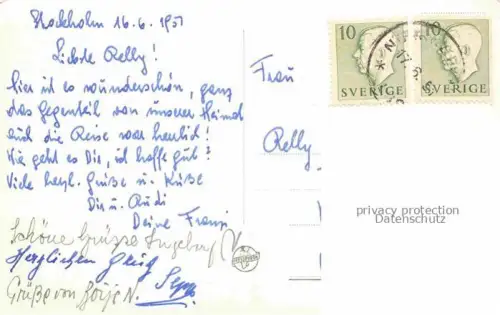 Stockholm 16.6.1951
Liebste Relly!
Hier ist es wunderschön, ganz
das Gegenteil von unserer Heimat
auch die Reise war herrlich!
Wie geht es Dir, ich hoffe gut?
Viele herzl. Grüße u. Küße
Dir u. Rudi
Deine Franzi
Schöne Grüsse Ingeburg
Herzlichen Sepp
Grüße von N.
Frau
Relly
10 10
SVERIGE SVERIGE
privacy protection
Datenschutz